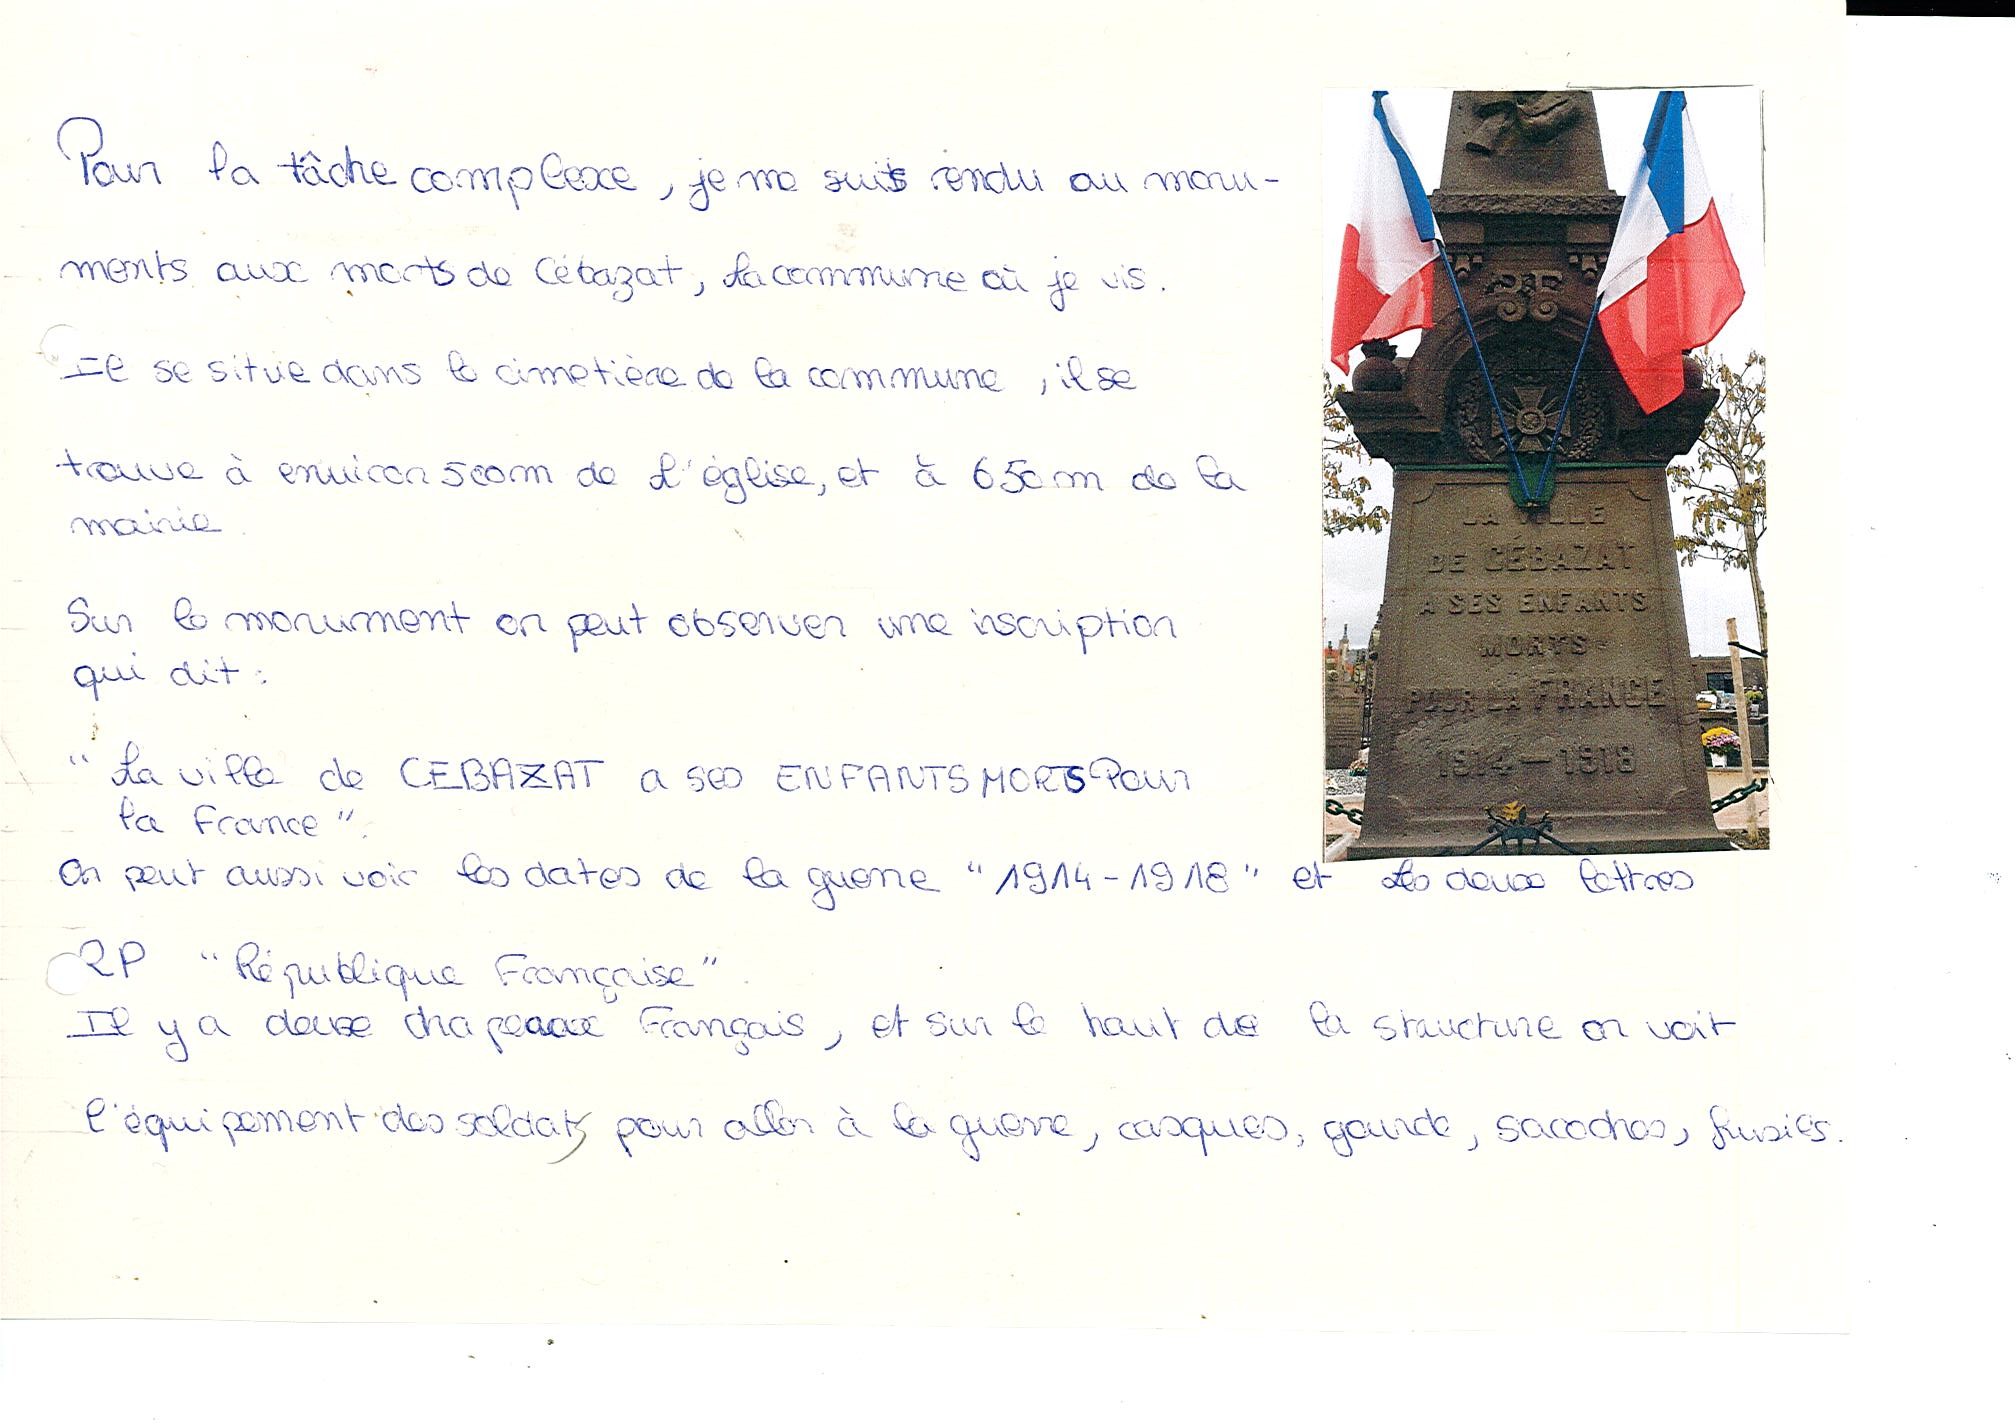 Pour la tâche complexe, je me suis rendu au monu-
ments aux morts de Cébazat, la commune où je vis.
Il se situe dans le cimetière de la commune, il se
trouve à environ 500m de l'église, et à 650m de la
mairie.
Sur le monument on peut observer une inscription
qui dit :
"La ville de CEBAZAT a ses ENFANTS MORTS Pour
la France".
On peut aussi voir les dates de la guerre "1914-1918" et les deux lettres
RP "République Française".
Il y a deux drapeaux Français, et sur le haut de la structure on voit
l'équipement des soldats pour aller à la guerre, casques, gourde, sacoches, fusils.
LA VILLE
DE CÉBAZAT
A SES ENFANTS
MORTS
POUR LA FRANCE
1914-1918